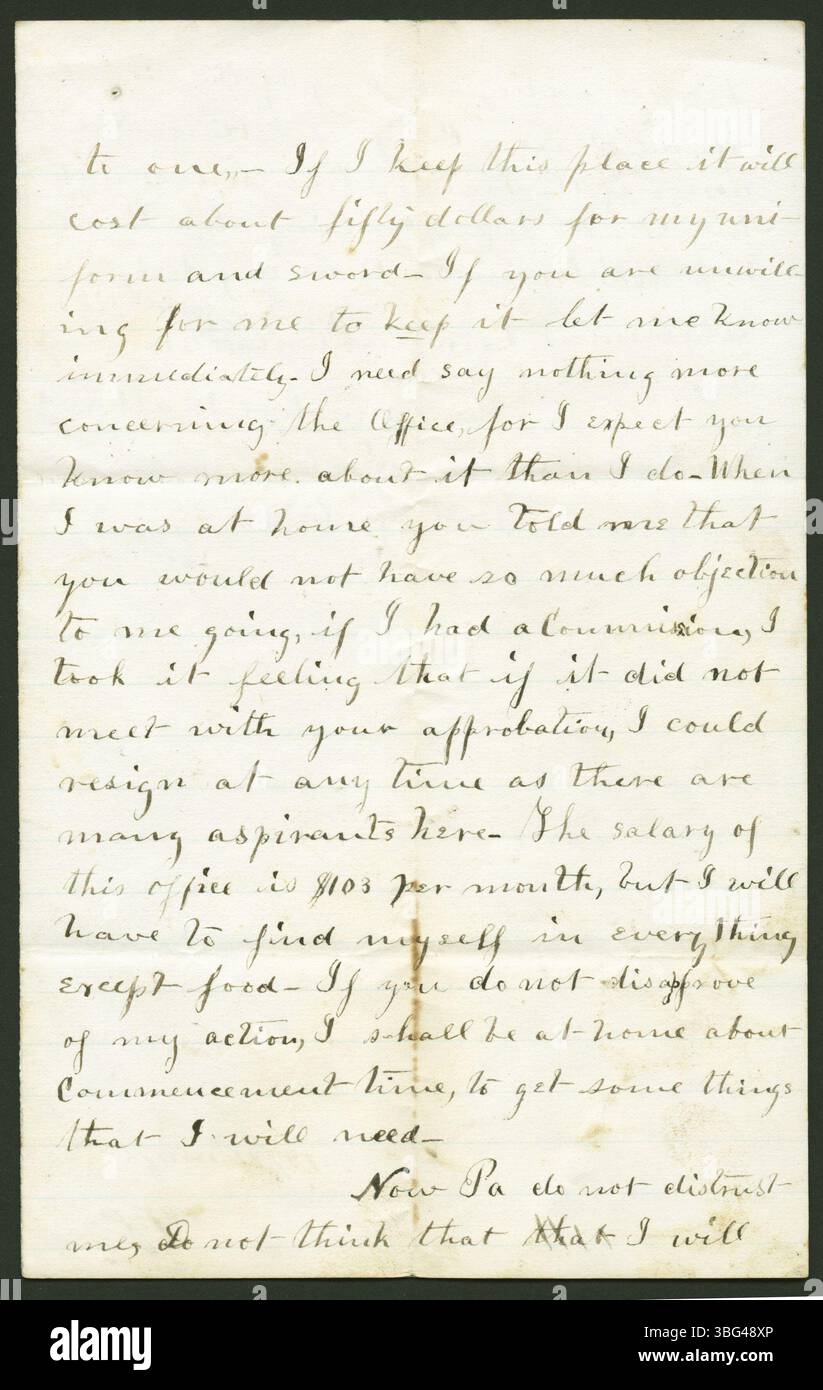 to one,– If I keep this place it will
cost about fifty dollars for my uni-
form and sword– If you are unwill-
ing for me to keep it let me know
immediately– I need say nothing more
concerning the Office, for I expect you
know more about it than I do– When
I was at home you told me that
you would not have so much objection
to me going, if I had a Commission, I
took it feeling that if it did not
meet with your approbation, I could
resign at any time as there are
many aspirants here– The salary of
this office is $103 per month, but I will
have to find myself in everything
except food– If you do not disapprove
of my action, I shall be at home about
Commencement time, to get some things
that I will need–
Now Pa do not distrust
me, Do not think that that I will
alamy
Image ID: 3BG48XP
www.alamy.com